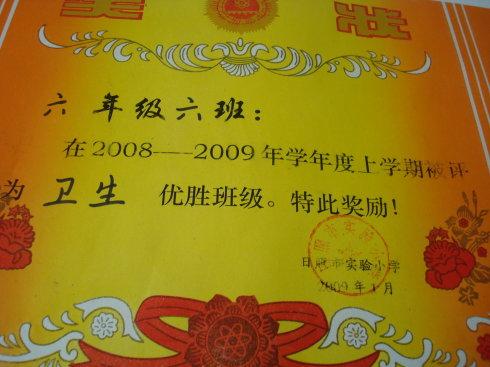 奖状
六年级六班：
在2008——2009年学年度上学期被评
为 卫生 优胜班级。特此奖励！
日照市实验小学
2009年1月